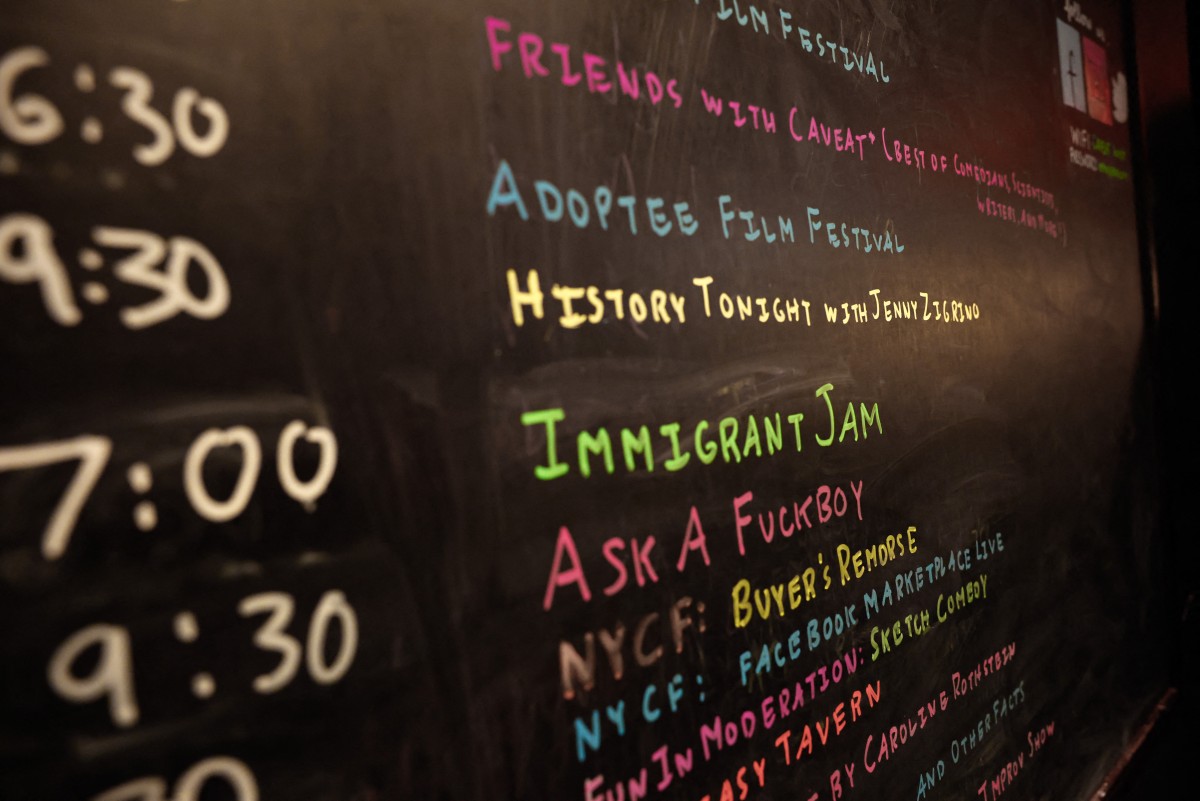 FILM FESTIVAL
6:30 FRIENDS WITH CAVEAT* (BEST OF COMEDIANS, SCIENTISTS,
WRITERS AND MORE!)
follow us
WIFI:
PASSWORD:
ADOPTEE FILM FESTIVAL
9:30 HISTORY TONIGHT WITH JENNY ZIGRINO
7:00 IMMIGRANT JAM
9:30 ASK A FUCKBOY
NYCF: BUYER'S REMORSE
NYCF: FACEBOOK MARKETPLACE LIVE
FUN IN MODERATION: SKETCH COMBOY
EASY TAVERN
BY CAROLINE ROTHSTEIN
AND OTHER FACTS
IMPROV SHOW